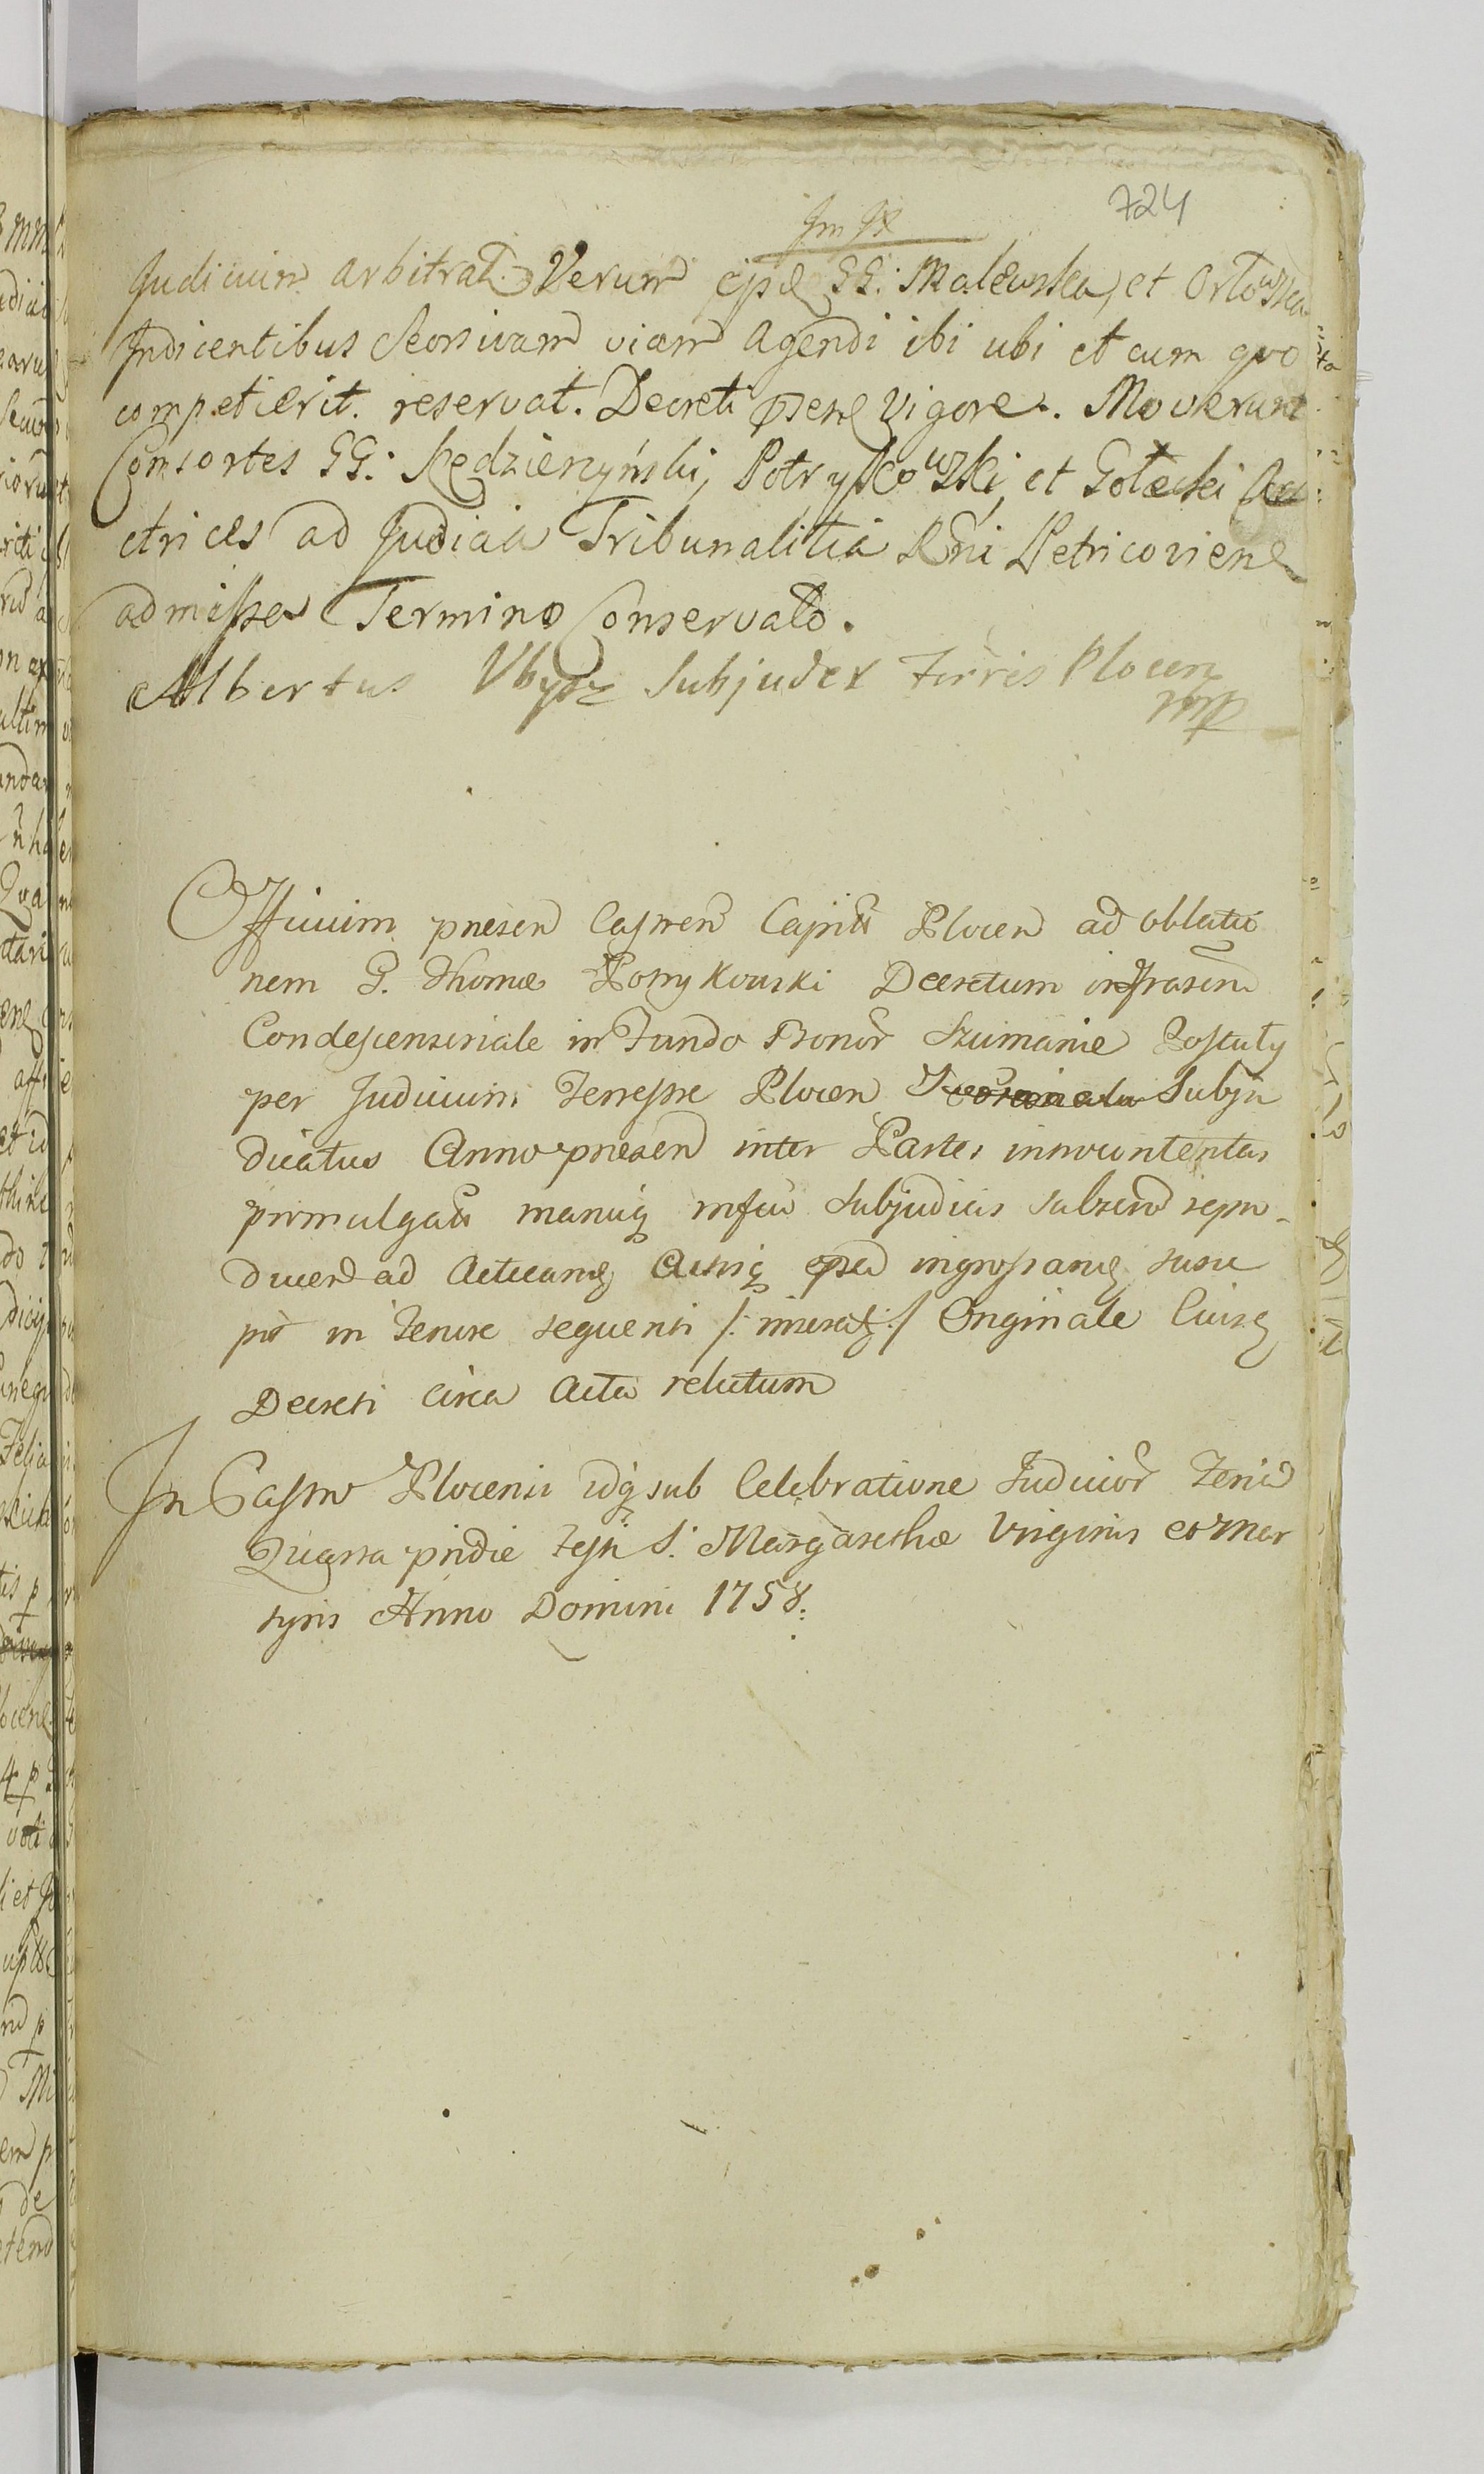 724
Judicium arbitrat. Verum GG: Malewska, et Orłowska
Indicentibus Seorsivam viam agendi ibi ubi et cum quo
competierit. reservat. Decreti vigore. Moverunt
Consortes GG: Kędzierzyński, Potrykowski, et Gołecki Ac
ctrices ad Judicia Tribunalitia Rni Petricovien
admissa Termino Conservato.
Albertus Subjudex Terris Plocen
mp
Officium presen Castren Capit Plocen ad oblatio
nem G. Thomæ Potrykowski Decretum infrascrip
Condescensoriale in Fundo Bonor Szumanie Postuły
per Judicium Terrestre Plocen Subju
dicatus Anno presen inter Partes introcontentas
promulgat manuq Subjudicis subscr repro-
ducend ad Acticand Actisq ingrossand susce
pit in Tenore sequenti /: :/ Originale Cuius
Decreti circa Acta relictum
In Castro Plocensi sub Celebratione Judicior Feria
Quarta pridie Festi S: Margarethæ Virginis et Mar
tyris Anno Domini 1758.